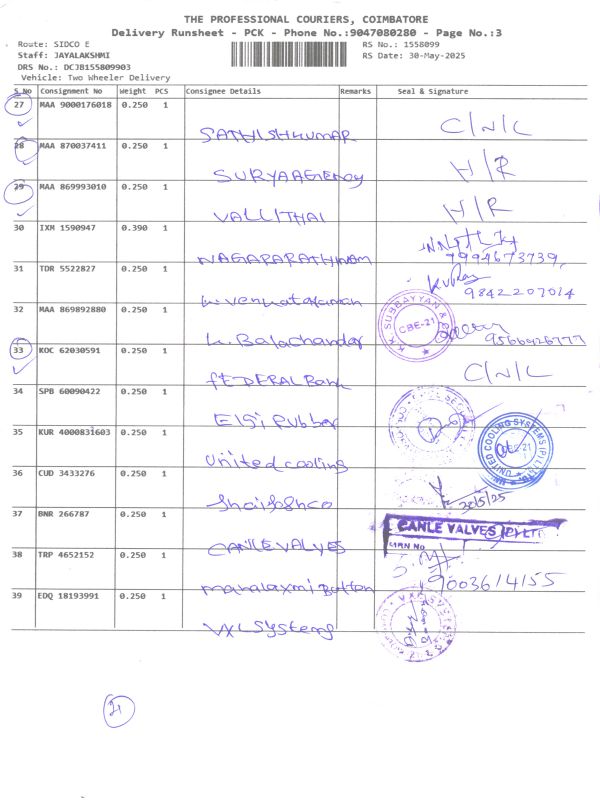 THE PROFESSIONAL COURIERS, COIMBATORE
Delivery Runsheet - PCK - Phone No.:9047080280 - Page No.:3
Route: SIDCO E RS No.: 1558099
Staff: JAYALAKSHMI RS Date: 30-May-2025
DRS No.: DCJB155809903
Vehicle: Two Wheeler Delivery
S.No Consignment No Weight PCS Consignee Details Remarks Seal & Signature
27 MAA 9000176018 0.250 1
SATHISHKUMAR C/N/C
28 MAA 870037411 0.250 1
SURYA AGENCY H/R
29 MAA 869993010 0.250 1
VALLITHAI H/R
30 IXM 1590947 0.390 1
NAGAPARATHINAM 7994673739,
31 TDR 5522827 0.250 1
K. Venkataraman 9842207014
32 MAA 869892880 0.250 1
K. Balachander K.K. SUBBAYYAN & CBE-21 9566426777
33 KOC 62030591 0.250 1
FEDERAL Bank C/N/C
34 SPB 60090422 0.250 1
Elgi Rubber
35 KUR 4000831603 0.250 1
United cooling UNITED COOLING SYSTEMS (P) LTD
36 CUD 3433276 0.250 1
30/5/25
37 BNR 266787 0.250 1
CANLE VALVES CANLE VALVES (P) LTD
38 TRP 4652152 0.250 1
mahalaxmi Button 9003614155
39 EDQ 18193991 0.250 1
VXL Systems